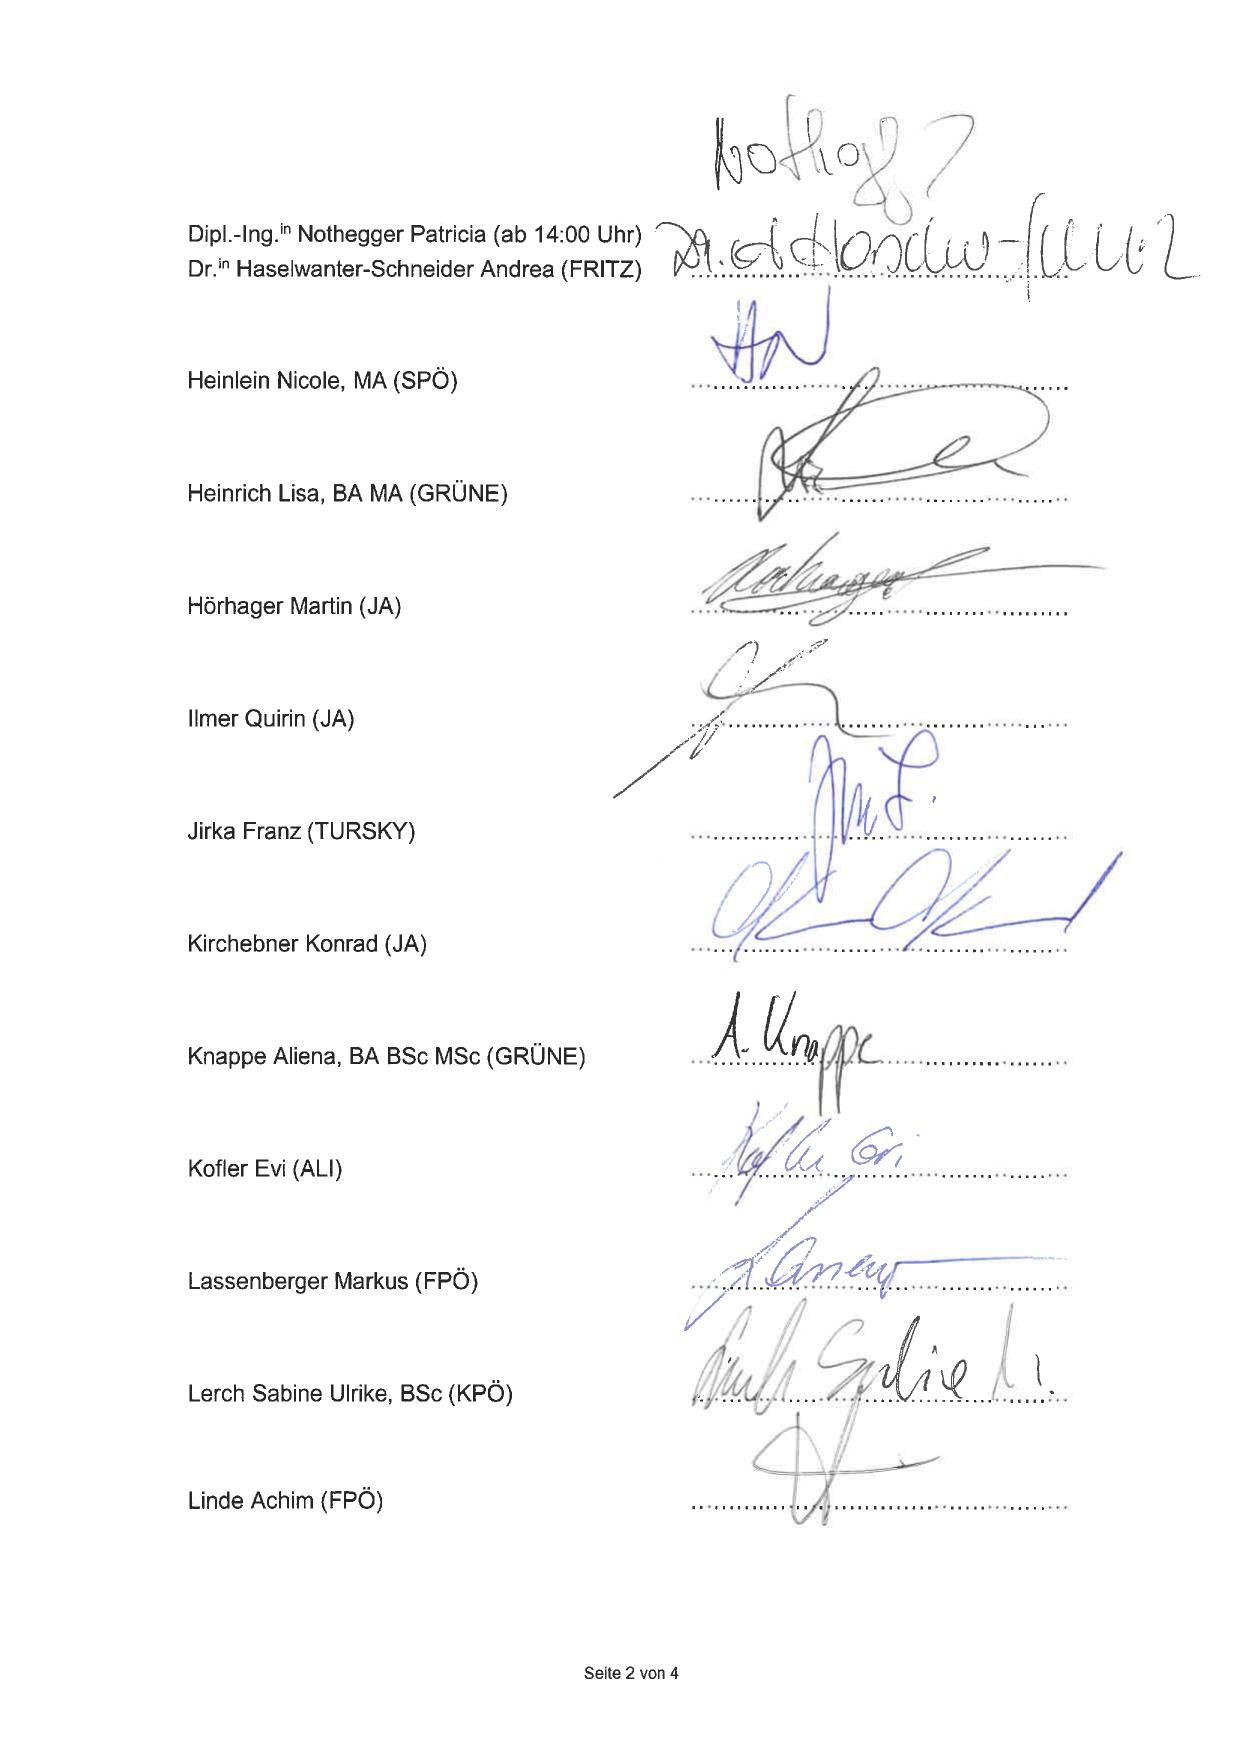 Dipl.-Ing.in Nothegger Patricia (ab 14:00 Uhr)
Dr.in Haselwanter-Schneider Andrea (FRITZ)
Heinlein Nicole, MA (SPÖ)
Heinrich Lisa, BA MA (GRÜNE)
Hörhager Martin (JA)
Ilmer Quirin (JA)
Jirka Franz (TURSKY)
Kirchebner Konrad (JA)
Knappe Aliena, BA BSc MSc (GRÜNE) A. Knappe
Kofler Evi (ALI) Kofler Evi
Lassenberger Markus (FPÖ)
Lerch Sabine Ulrike, BSc (KPÖ)
Linde Achim (FPÖ)
Seite 2 von 4